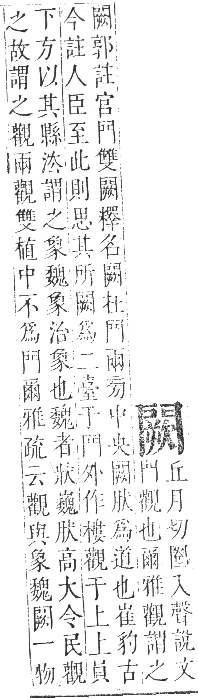 闕
丘月切圈入聲說文
門觀也爾雅觀謂之
闕郭註官門雙闕釋名闕在門兩旁中央闕肰為道也崔豹古
今註人臣至此則思其所闕為二臺于門外作樓觀于上上員
下方以其縣㳒謂之象魏象治象也魏者狀巍肰高大令民觀
之故謂之觀兩觀雙植中不為門爾雅疏云觀與象魏闕一物